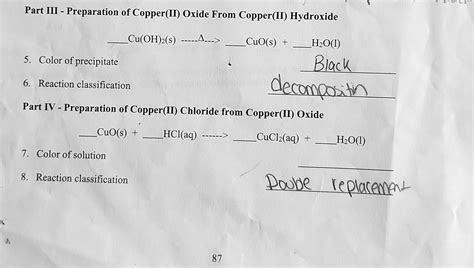 Part III - Preparation of Copper(II) Oxide From Copper(II) Hydroxide
___Cu(OH)₂(s) -----Δ---> ___CuO(s) + ___H₂O(l)
5. Color of precipitate Black
6. Reaction classification decompositin
Part IV - Preparation of Copper(II) Chloride from Copper(II) Oxide
___CuO(s) + ___HCl(aq) ------> ___CuCl₂(aq) + ___H₂O(l)
7. Color of solution
8. Reaction classification Double replacement
87